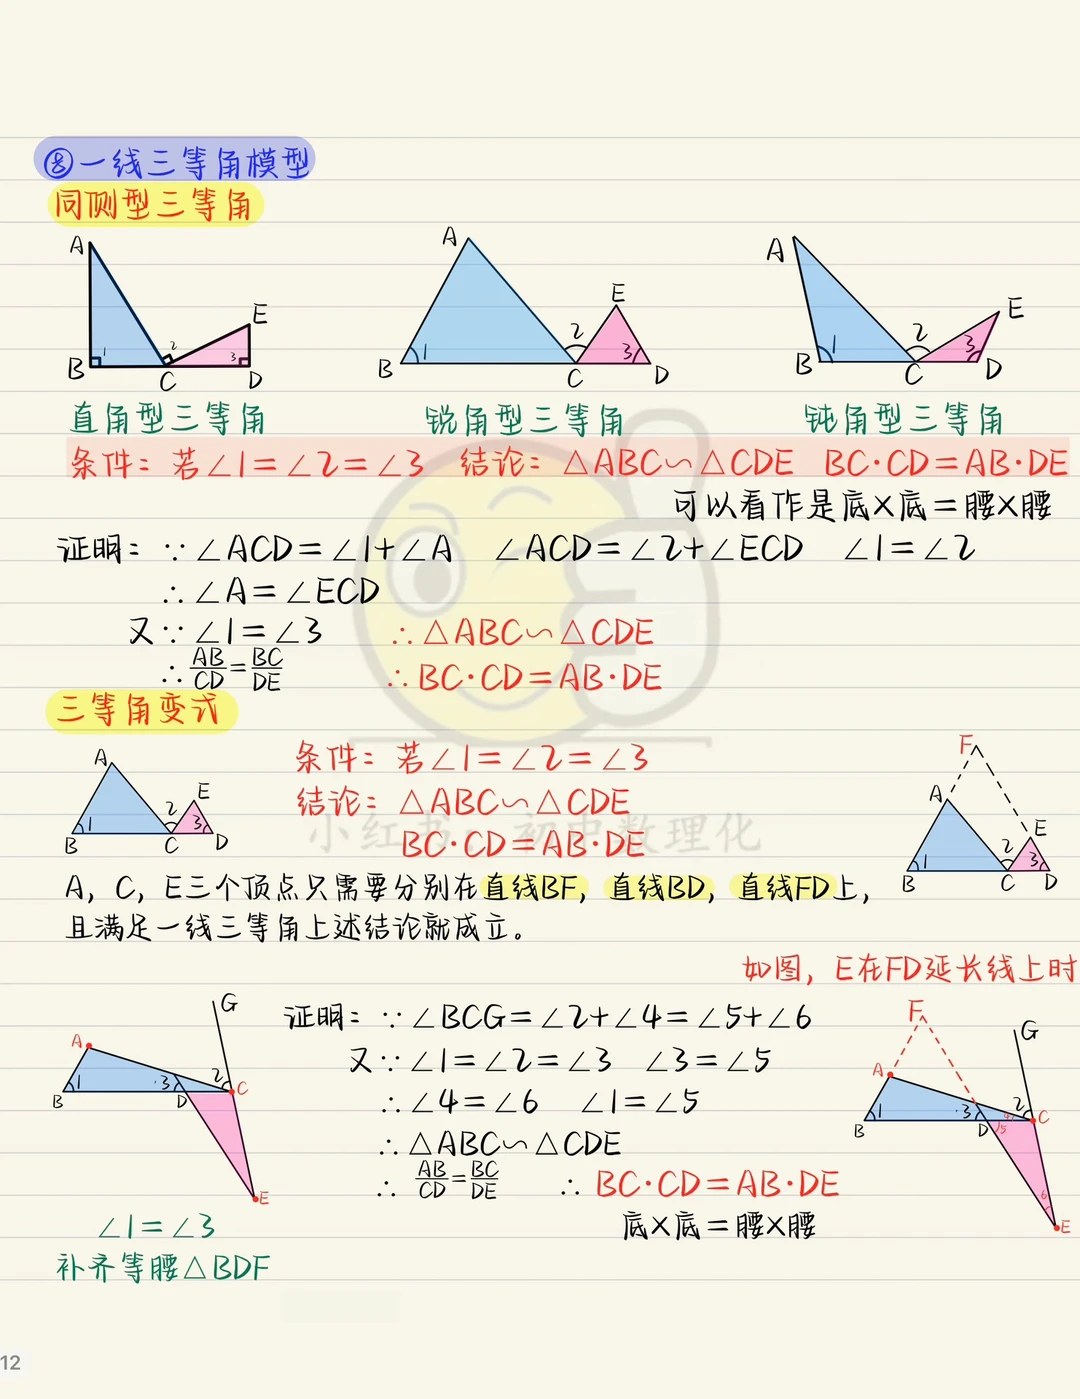 ⑧一线三等角模型
同侧型三等角
A B C D E 1 2 3
A B C D E 1 2 3
A B C D E 1 2 3
直角型三等角 锐角型三等角 钝角型三等角
条件：若∠1＝∠2＝∠3 结论：△ABC∽△CDE BC·CD＝AB·DE
可以看作是底×底＝腰×腰
证明：∵∠ACD＝∠1+∠A ∠ACD＝∠2+∠ECD ∠1＝∠2
∴∠A＝∠ECD
又∵∠1＝∠3 ∴△ABC∽△CDE
∴AB/CD＝BC/DE ∴BC·CD＝AB·DE
三等角变式
A B C D E 1 2 3
条件：若∠1＝∠2＝∠3
结论：△ABC∽△CDE
BC·CD＝AB·DE
小红书：初中数理化
F A E B C D 1 2 3
A，C，E三个顶点只需要分别在直线BF，直线BD，直线FD上，
且满足一线三等角上述结论就成立。
如图，E在FD延长线上时
G A B D C E 1 3 2
证明：∵∠BCG＝∠2+∠4＝∠5+∠6
又∵∠1＝∠2＝∠3 ∠3＝∠5
∴∠4＝∠6 ∠1＝∠5
∴△ABC∽△CDE
∴AB/CD＝BC/DE ∴BC·CD＝AB·DE
底×底＝腰×腰
F G A B D C E 1 3 2 4 5 6
∠1＝∠3
补齐等腰△BDF
12